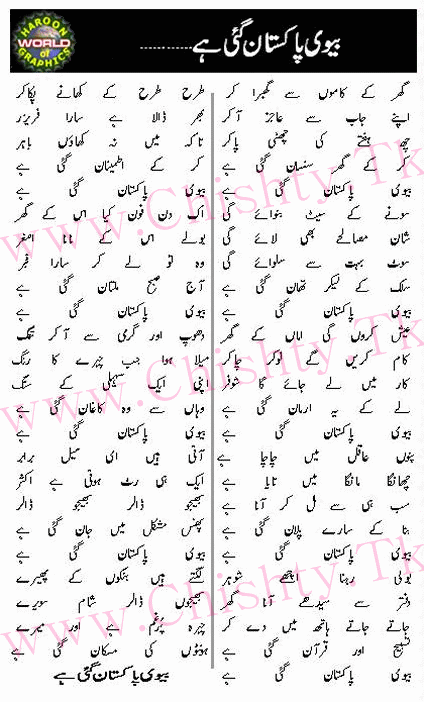 HAROON WORLD of GRAPHICS
بیوی پاکستان گئی ہے ............
گھر کے کاموں سے گھبرا کر
اپنے جاب سے عاجز آ کر
چھ ہفتے کی چھٹی پا کر
کر کے گھر سنسان گئی ہے
بیوی پاکستان گئی ہے
سونے کے سیٹ بنوائے گی
شان مصالحے بھی لائے گی
سوٹ بہت سے سلوائے گی
سلک کے لیکر تھان گئی ہے
بیوی پاکستان گئی ہے
عیش کروں گی اماں کے گھر
کام کریں گے نوکر چاکر
کار میں لے جائے گا شوفر
لے کے یہ ارمان گئی ہے
بیوی پاکستان گئی ہے
پنوں عاقل میں چاچا ہے
چھانگا مانگا میں تایا ہے
سب ہی سے مل کر آنا ہے
بنا کے سارے پلان گئی ہے
بیوی پاکستان گئی ہے
بولی رہنا اچھے شوہر
دفتر سے سیدھے آنا گھر
جاتے جاتے ہاتھ میں دے کر
تسبیح اور قرآن گئی ہے
بیوی پاکستان گئی ہے
طرح طرح کے کھانے پکا کر
بھر ڈالا ہے سارا فریزر
تاکہ میں نہ کھاؤں باہر
کر کے اطمینان گئی ہے
بیوی پاکستان گئی ہے
اک دن فون کیا اس کے گھر
بولے اس کے نانا اصغر
وہ تو لے کر سارا فجر
آج صبح ملتان گئی ہے
بیوی پاکستان گئی ہے
دھوپ اور گرمی سے آ کر تنگ
میلا ہوا جب چہرے کا رنگ
اپنی ایک سہیلی کے سنگ
وہاں سے وہ کاغان گئی ہے
بیوی پاکستان گئی ہے
آتی ہیں ای میل برابر
ایک ہی رٹ ہوتی ہے اکثر
بھیجو ڈالر بھیجو ڈالر
پھنس مشکل میں جان گئی ہے
بیوی پاکستان گئی ہے
لگتے ہیں بنکوں کے پھیرے
بھیجوں ڈالر شام سویرے
چہرہ پرغم ہے اور میرے
ہونٹوں کی مسکان گئی ہے
بیوی پاکستان گئی ہے
www.Chishty.Tk
www.Chishty.Tk
www.Chishty.Tk